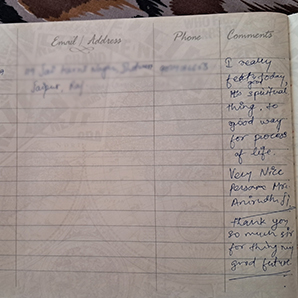 Email / Address
Phone
Comments
Jaipur, Raj
I really
feel today,
spiritual
thing, so
good way
for process
of life.
Very Nice
Persone Mr.
Anirudh Ji
Thank you
so much sir
for thing my
good future